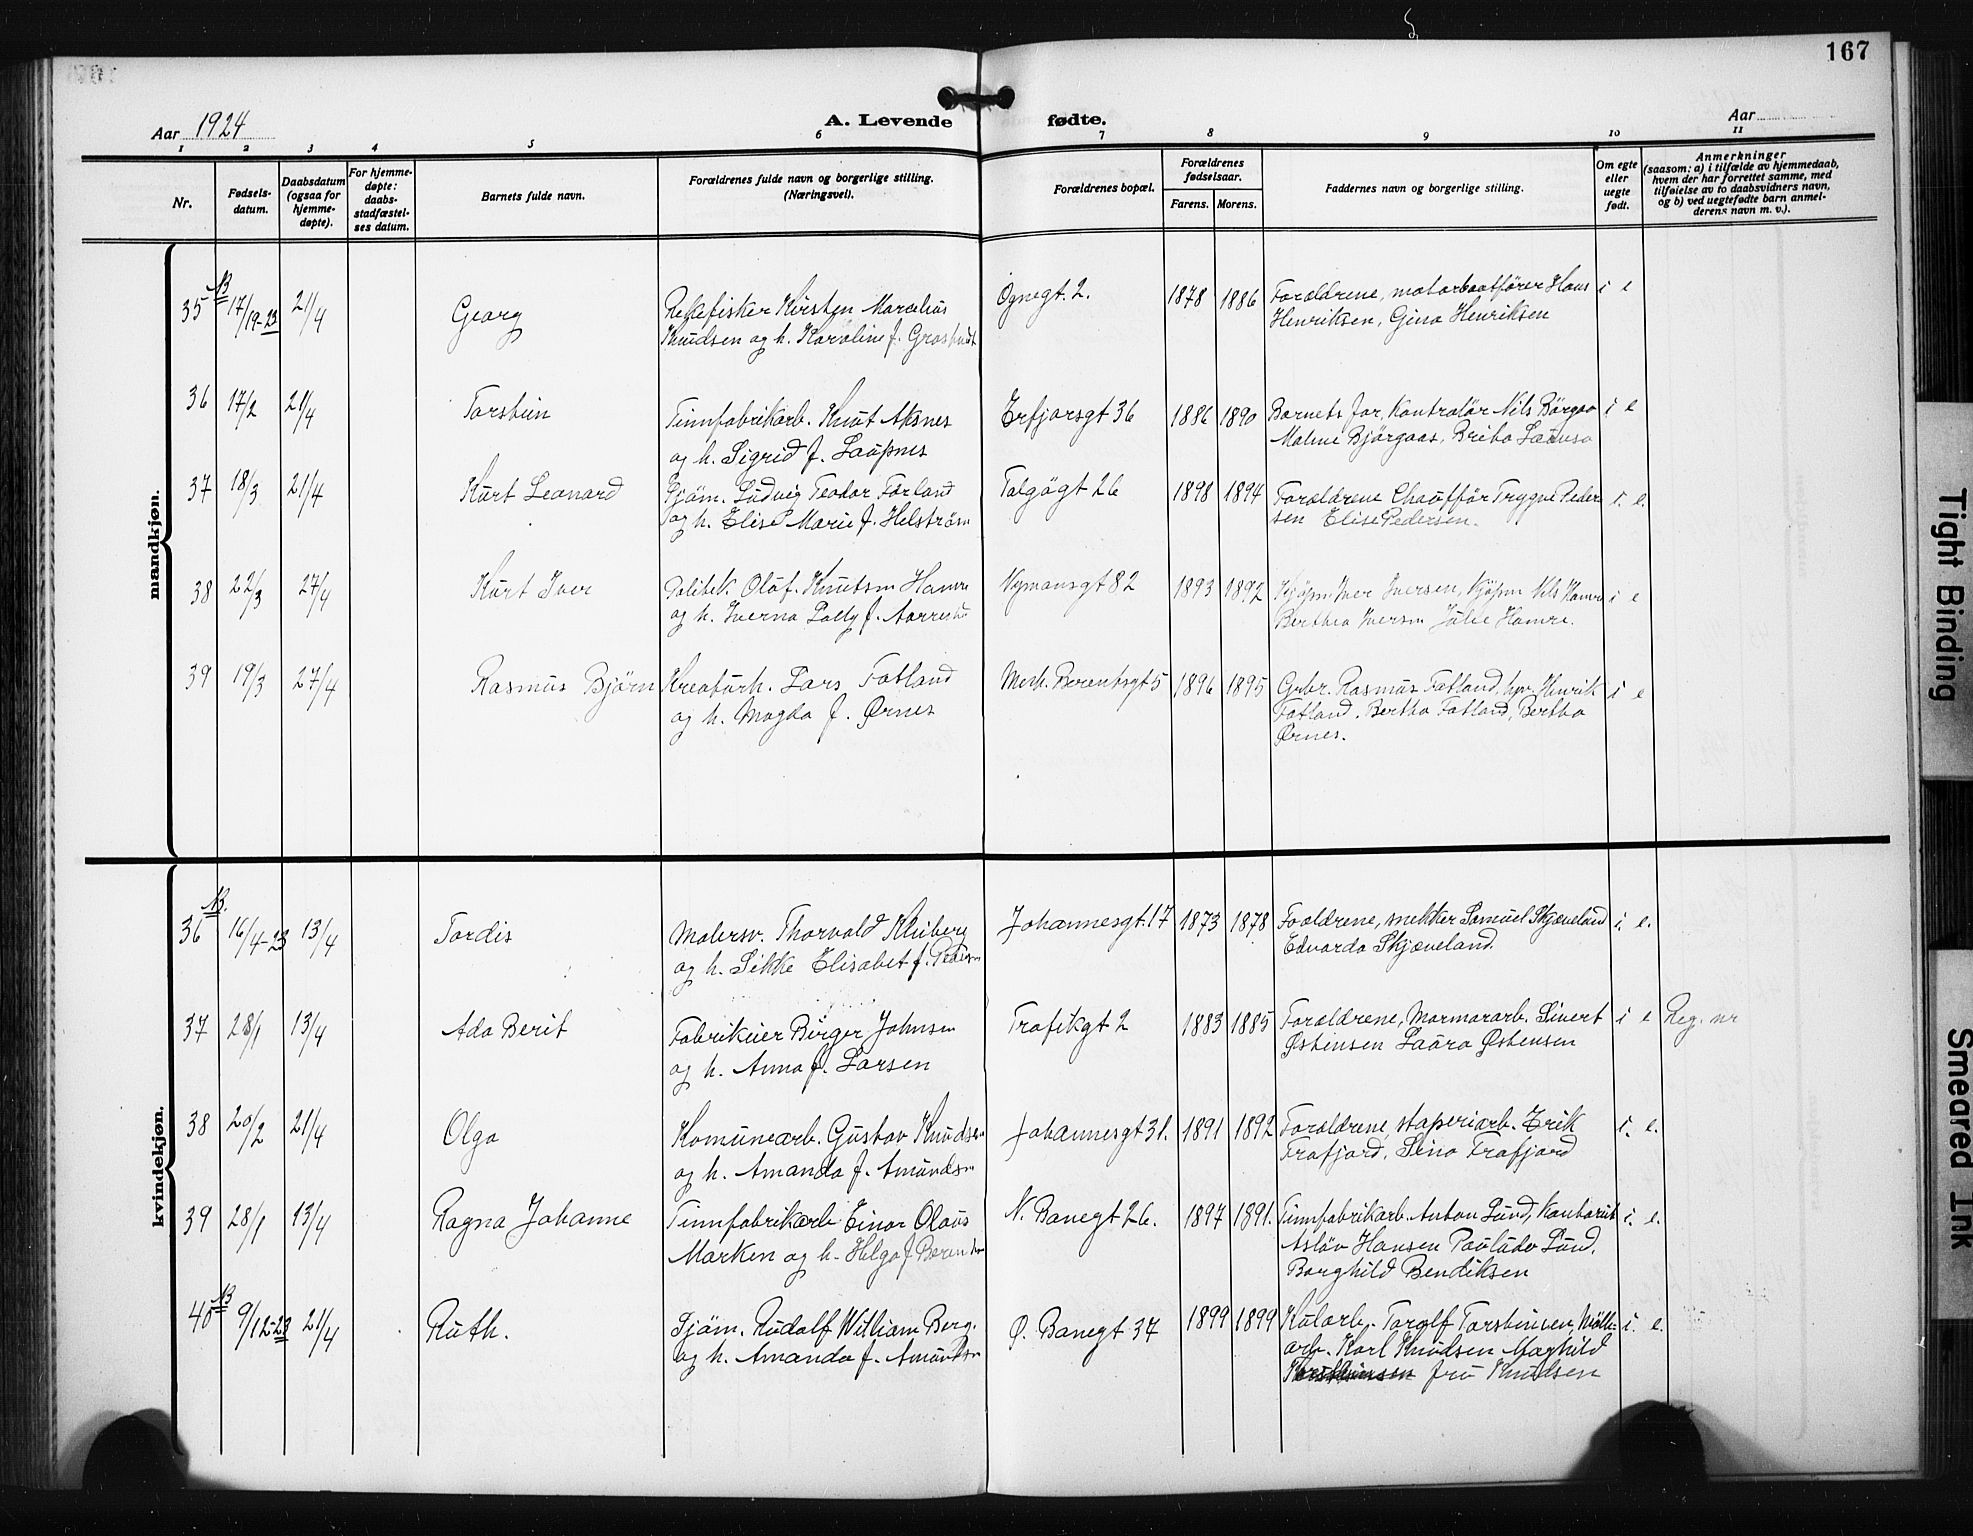 167
Aar 1924
A. Levende fødte.
Aar
1 2 3 4 5 6 7 8 9 10 11
Nr.
Fødsels-
datum.
Daabsdatum
(ogsaa for
hjemme-
døpte).
For hjemme-
døpte:
daabs-
stadfæstel-
ses datum.
Barnets fulde navn.
Forældrenes fulde navn og borgerlige stilling.
(Næringsvei).
Forældrenes bopæl.
Forældrenes
fødselsaar.
Farens. Morens.
Faddernes navn og borgerlige stilling.
Om egte
eller
uegte
født.
Anmerkninger
(saasom: a) i tilfælde av hjemmedaab,
hvem der har forrettet samme, med
tilføielse av to daabsvidners navn,
og b) ved uegtefødte barn anmel-
derens navn m. v.).
mandkjøn.
35 NB 17/19-23 21/4 Georg
Kirsten Marcelius
Knudsen og h. Karoline f.
Ognegt. 2. 1878 1886
Forældrene, motorbaatfører Hans
Henriksen, Gina Henriksen
i e
36 17/2 21/4 Torstein
Tinnfabrikarb. Knut Aksnes
og h. Sigrid f. Laupnes
Erfjorsgt 36 1886 1890
Barnets far, Kontrolør Nils
Malene Bjørgaas,
i e
37 18/3 21/4 Kurt Leonard
Sjøm. Ludvig Teodor Førland
og h. Elise Marie f. Helstrøm
Talgøgt 26 1898 1894
Forældrene Chauffør Trygve Peder
sen Elise Pedersen.
i. e.
38 22/3 27/4 Kurt Iver
Politik. Olaf Knutsen Hamre
og h. Iverna Polly f.
Nymansgt 82 1893 1892
Kjøpm. Iver Iversen, Kjøpm Nils Hamre
Berthea Iversen Julie Hamre.
i e
39 19/3 27/4 Rasmus Bjørn
Kreaturh. Lars Fatland
og h. Magda f. Ørnes
Mich. Berentsgt 5 1896 1895
Grbr. Rasmus Fatland, hpr. Henrik
Fatland. Bertha Fatland, Bertha
Ørnes.
i e
kvindekjøn.
36 NB. 16/4-23 13/4 Tordis
Malersv. Thorvald Kluberg
og h. Sikke Elisabet f.
Johannesgt. 17 1873 1878
Foældrene, snekker Samuel Skjæveland
Edvarda Skjæveland.
i. e.
37 28/1 13/4 Ada Berit
Fabrikeier Børger Johnsen
og h. Anna f. Larsen
Trafikgt 2 1883 1885
Forældrene, Marmorarb. Sivert
Østensen Laura Østensen
i e Reg. nr
38 20/2 21/4 Olga
Komunearb. Gustav Knudsen
og h. Amanda f. Amundsn
Johannesgt 31. 1891 1892
Forældrene, støperiarb. Erik
Frafjord, Sina Frafjord
i. e.
39 28/1 13/4 Ragna Johanne
Tinnfabrikarb Einar Olaus
Marken og h. Helga f. Berentsen
N. Banegt 26. 1897 1891.
Tinnfabrikarb. Anton Lund, Kontorist
Asløv Hansen Paulidor Lund,
Borghild Bendiksen
i. e.
40 NB 9/12-23 21/4 Ruth.
Sjøm. Rudolf William Berg.
og h. Amanda f. Amundsn
Ø. Banegt 37 1899 1899
Kularb. Toralf Torsteinsen, Mølle-
arb. Karl Knudsen Maghild
fru Knudsen
i. e.
Tight Binding
Smeared Ink